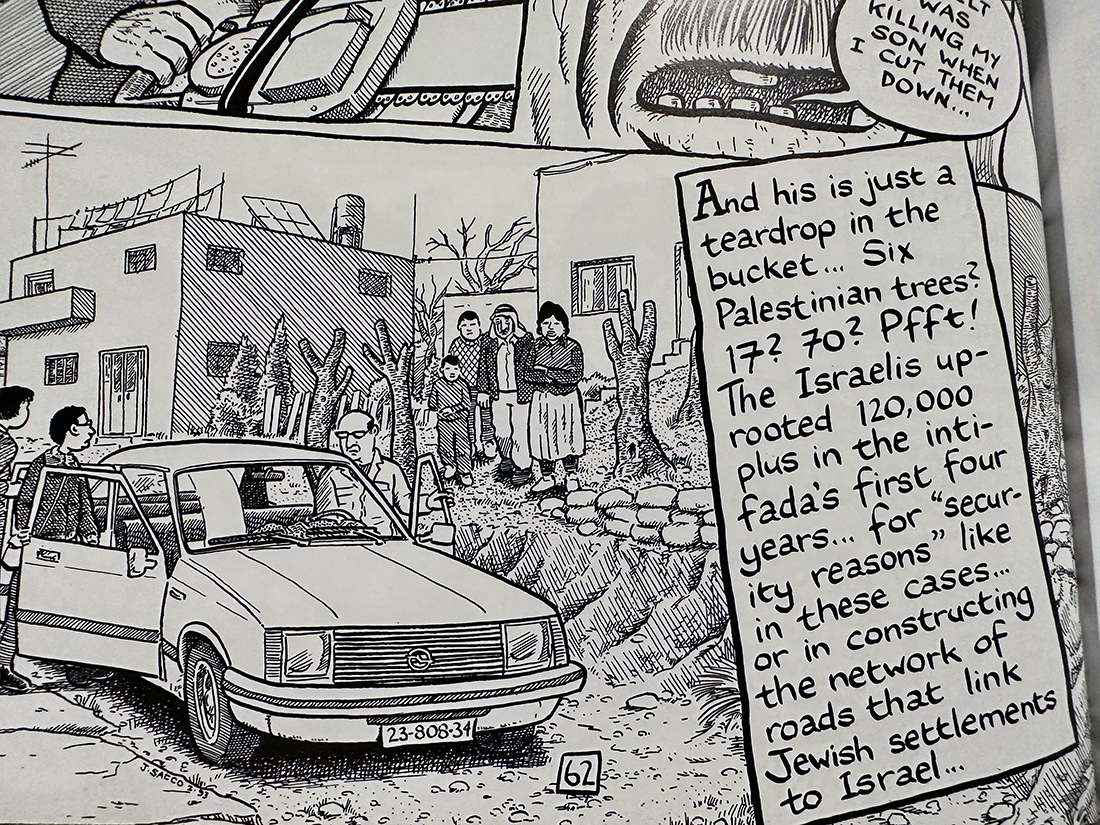 WAS
KILLING MY
SON WHEN
I CUT THEM
DOWN...
And his is just a
teardrop in the
bucket... Six
Palestinian trees?
17? 70? Pfft!
The Israelis up-
rooted 120,000
plus in the inti-
fada's first four
years... for "secur-
ity reasons" like
in these cases...
or in constructing
the network of
roads that link
Jewish settlements
to Israel...
23-808-34
62
J. SACCO 2.93